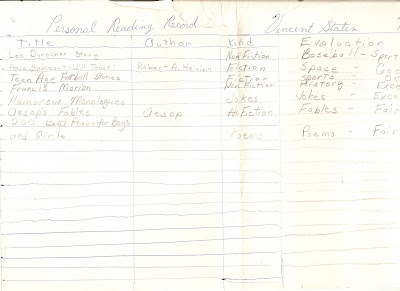 Personal Reading Record Vincent Staten
Title Author Kind Evaluation
Leo Durocher Story Non Fiction Baseball - Sport
Have Spacesuit Will Travel Robert A. Heinlein Fiction Space - Goo
Teen Age Football Stories Fiction Sports -
Francis Marion Non Fiction History - Exce
Humorous Monologues Jokes Jokes - Exce
Aesop's Fables Aesop Fiction Fables - Fair
200 Best Poems for Boys
and Girls Poems Poems - Fair